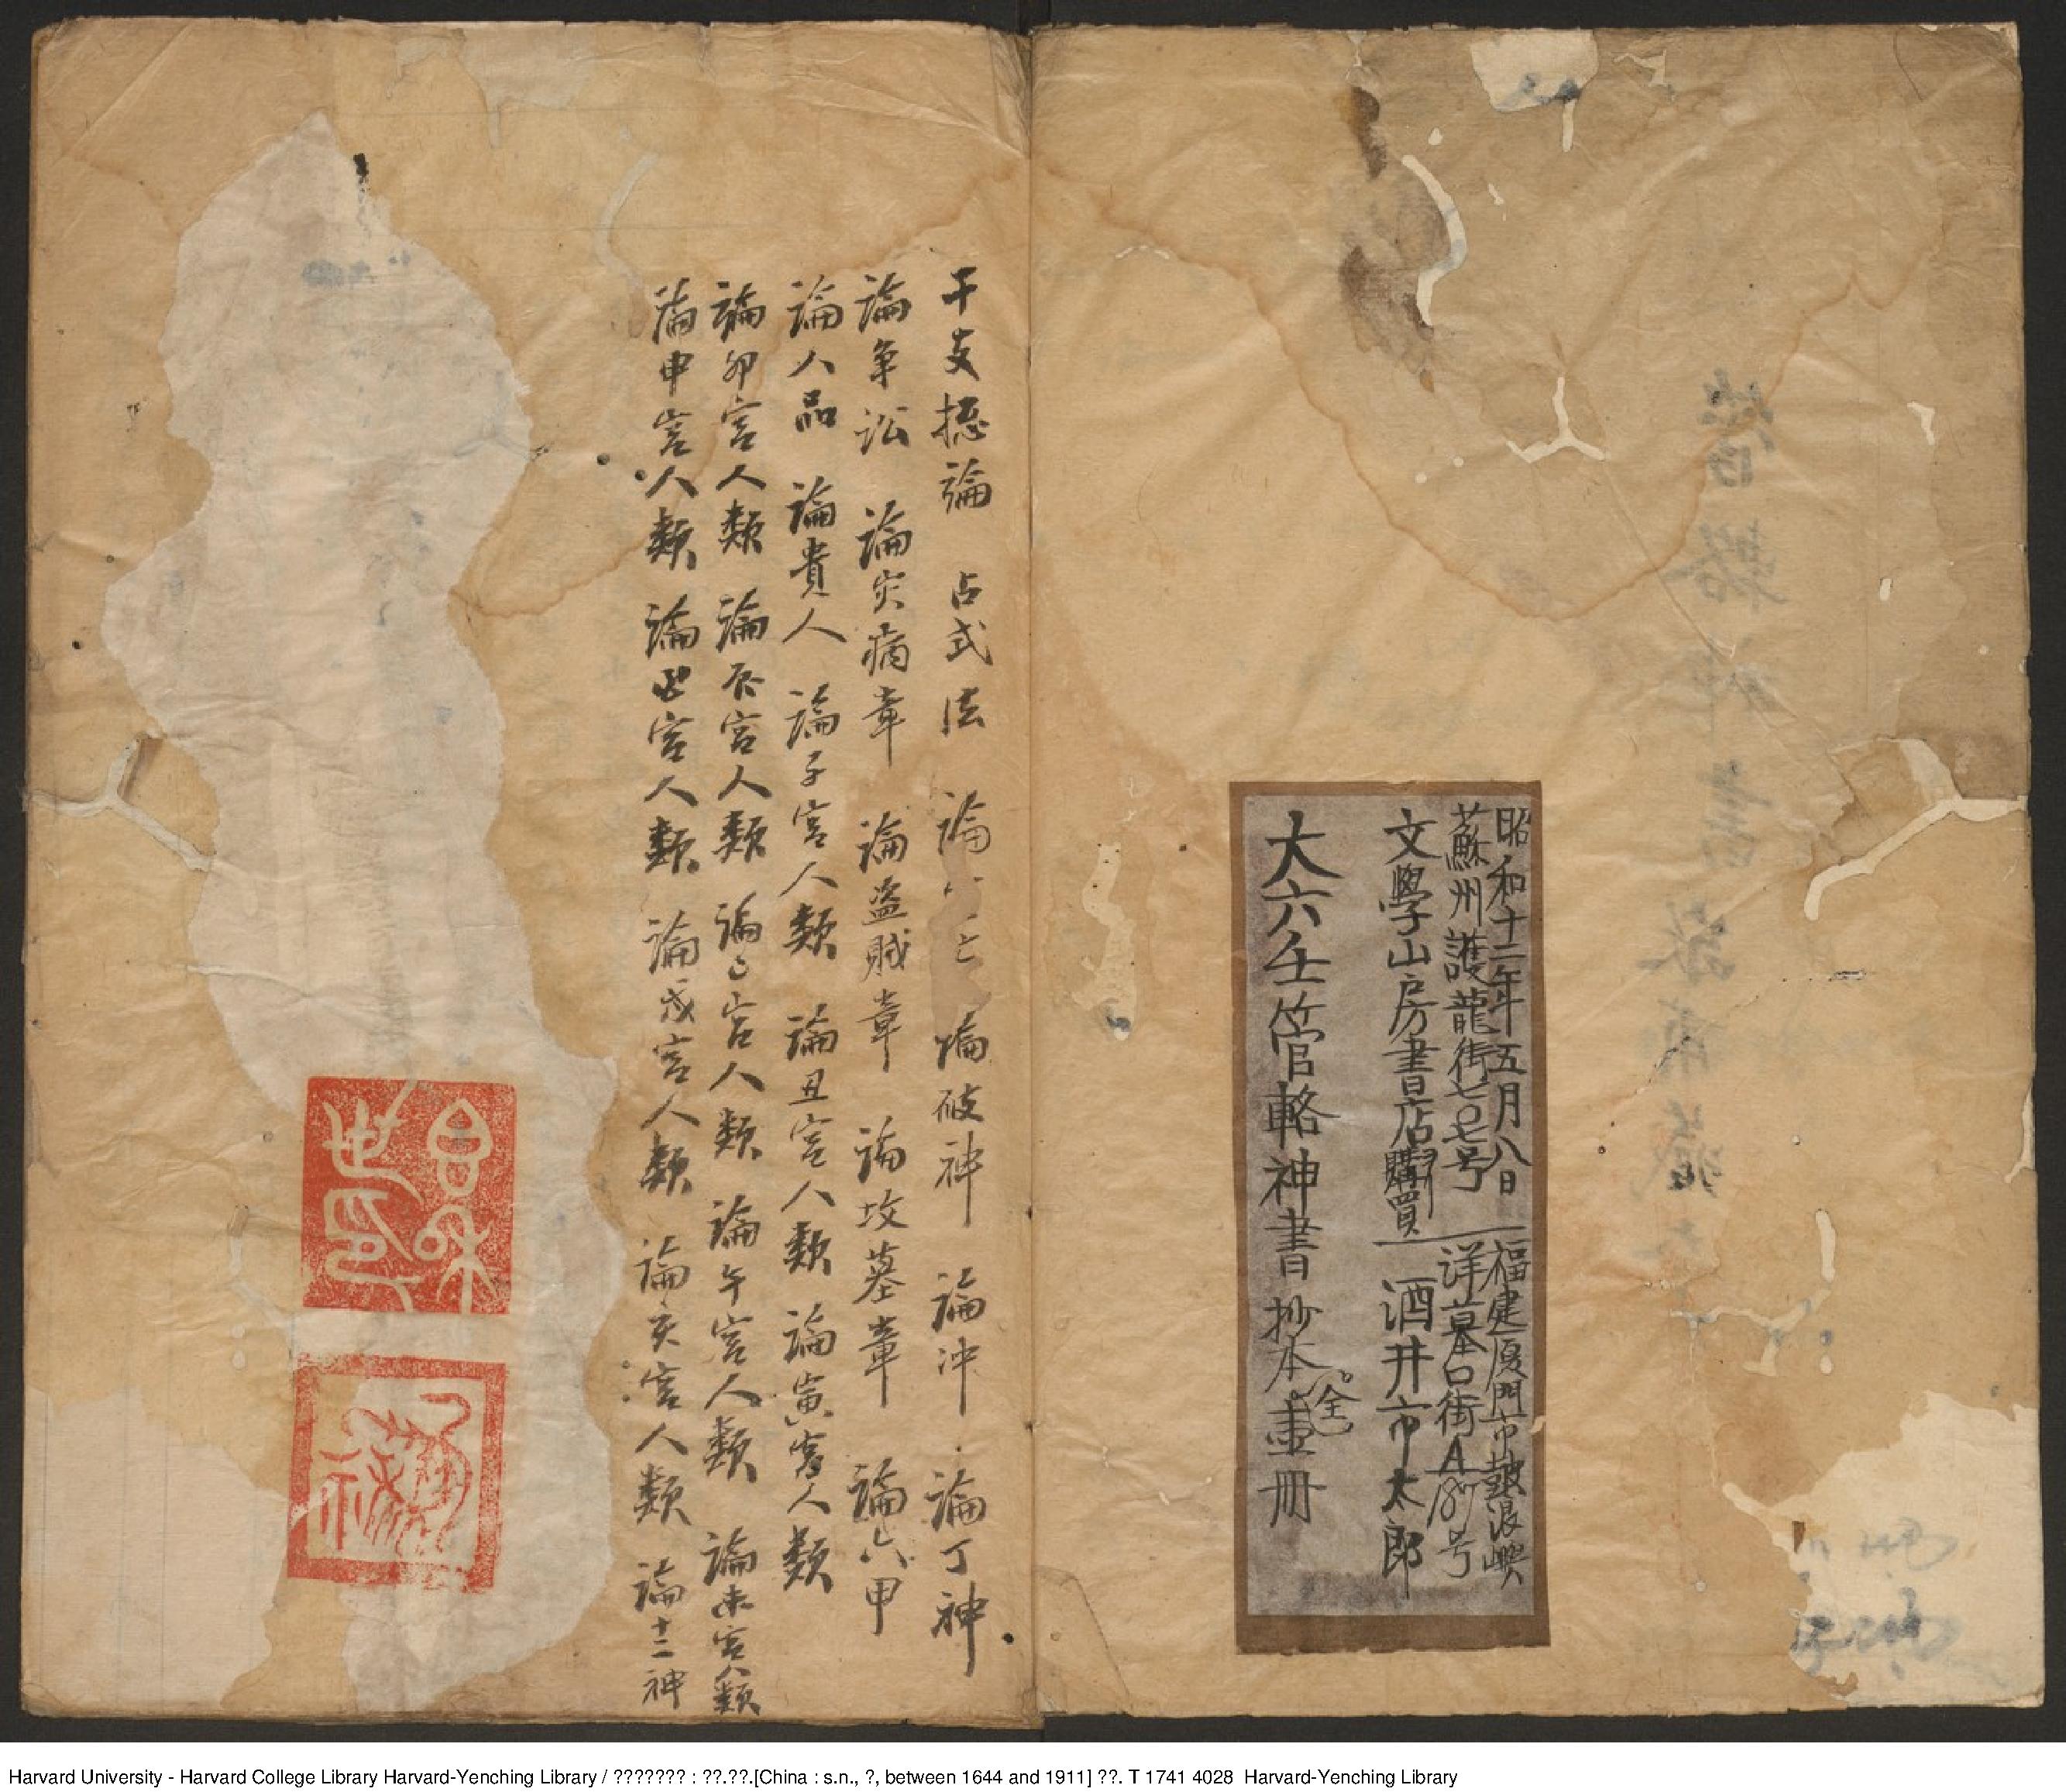 昭和十二年五月八日
蘇州護龍街七〇七号
文學山房書店購買
福建厦門市鼓浪嶼
洋墓口街A187号
酒井市太郎
大六壬管輅神書抄本壹冊
全
干支捴論 占式法 論 論破神 論冲 論丁神
論争訟 論灾病章 論盗賊章 論坟墓章 論六甲
論人品 論貴人 論子宮人類 論丑宮人類 論寅宮人類
論卯宮人類 論辰宮人類 論巳宮人類 論午宮人類 論未宮人類
論申宮人類 論酉宮人類 論戌宮人類 論亥宮人類 論十二神
Harvard University - Harvard College Library Harvard-Yenching Library / ??????? : ??.??.[China : s.n., ?, between 1644 and 1911] ??. T 1741 4028 Harvard-Yenching Library